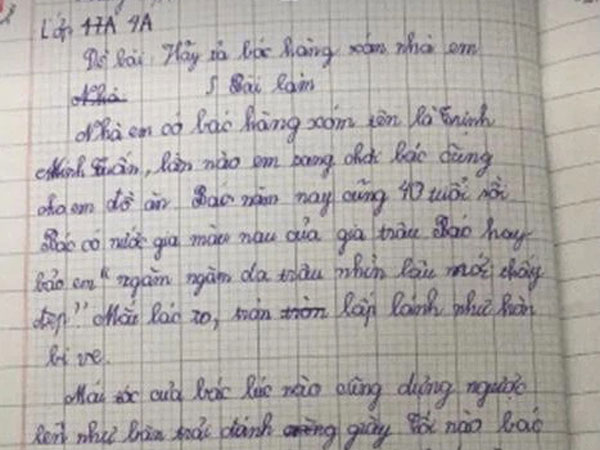 Lớp 4A
Đề bài Hãy tả bác hàng xóm nhà em
Bài làm
Nhà em có bác hàng xóm tên là Trịnh
Minh Tuấn, lần nào em sang chơi bác cũng
cho em đồ ăn Bác năm nay cũng 40 tuổi rồi
Bác có nước gia màu nau của gia trâu Bác hay
bảo em "ngăm ngăm da trâu nhìn lâu mới thấy
đẹp" Mắt bác to, tròn lấp lánh như hòn
bi ve.
Mái tóc của bác lúc nào cũng dựng ngược
lên như bàn trải đánh giày Tối nào bác